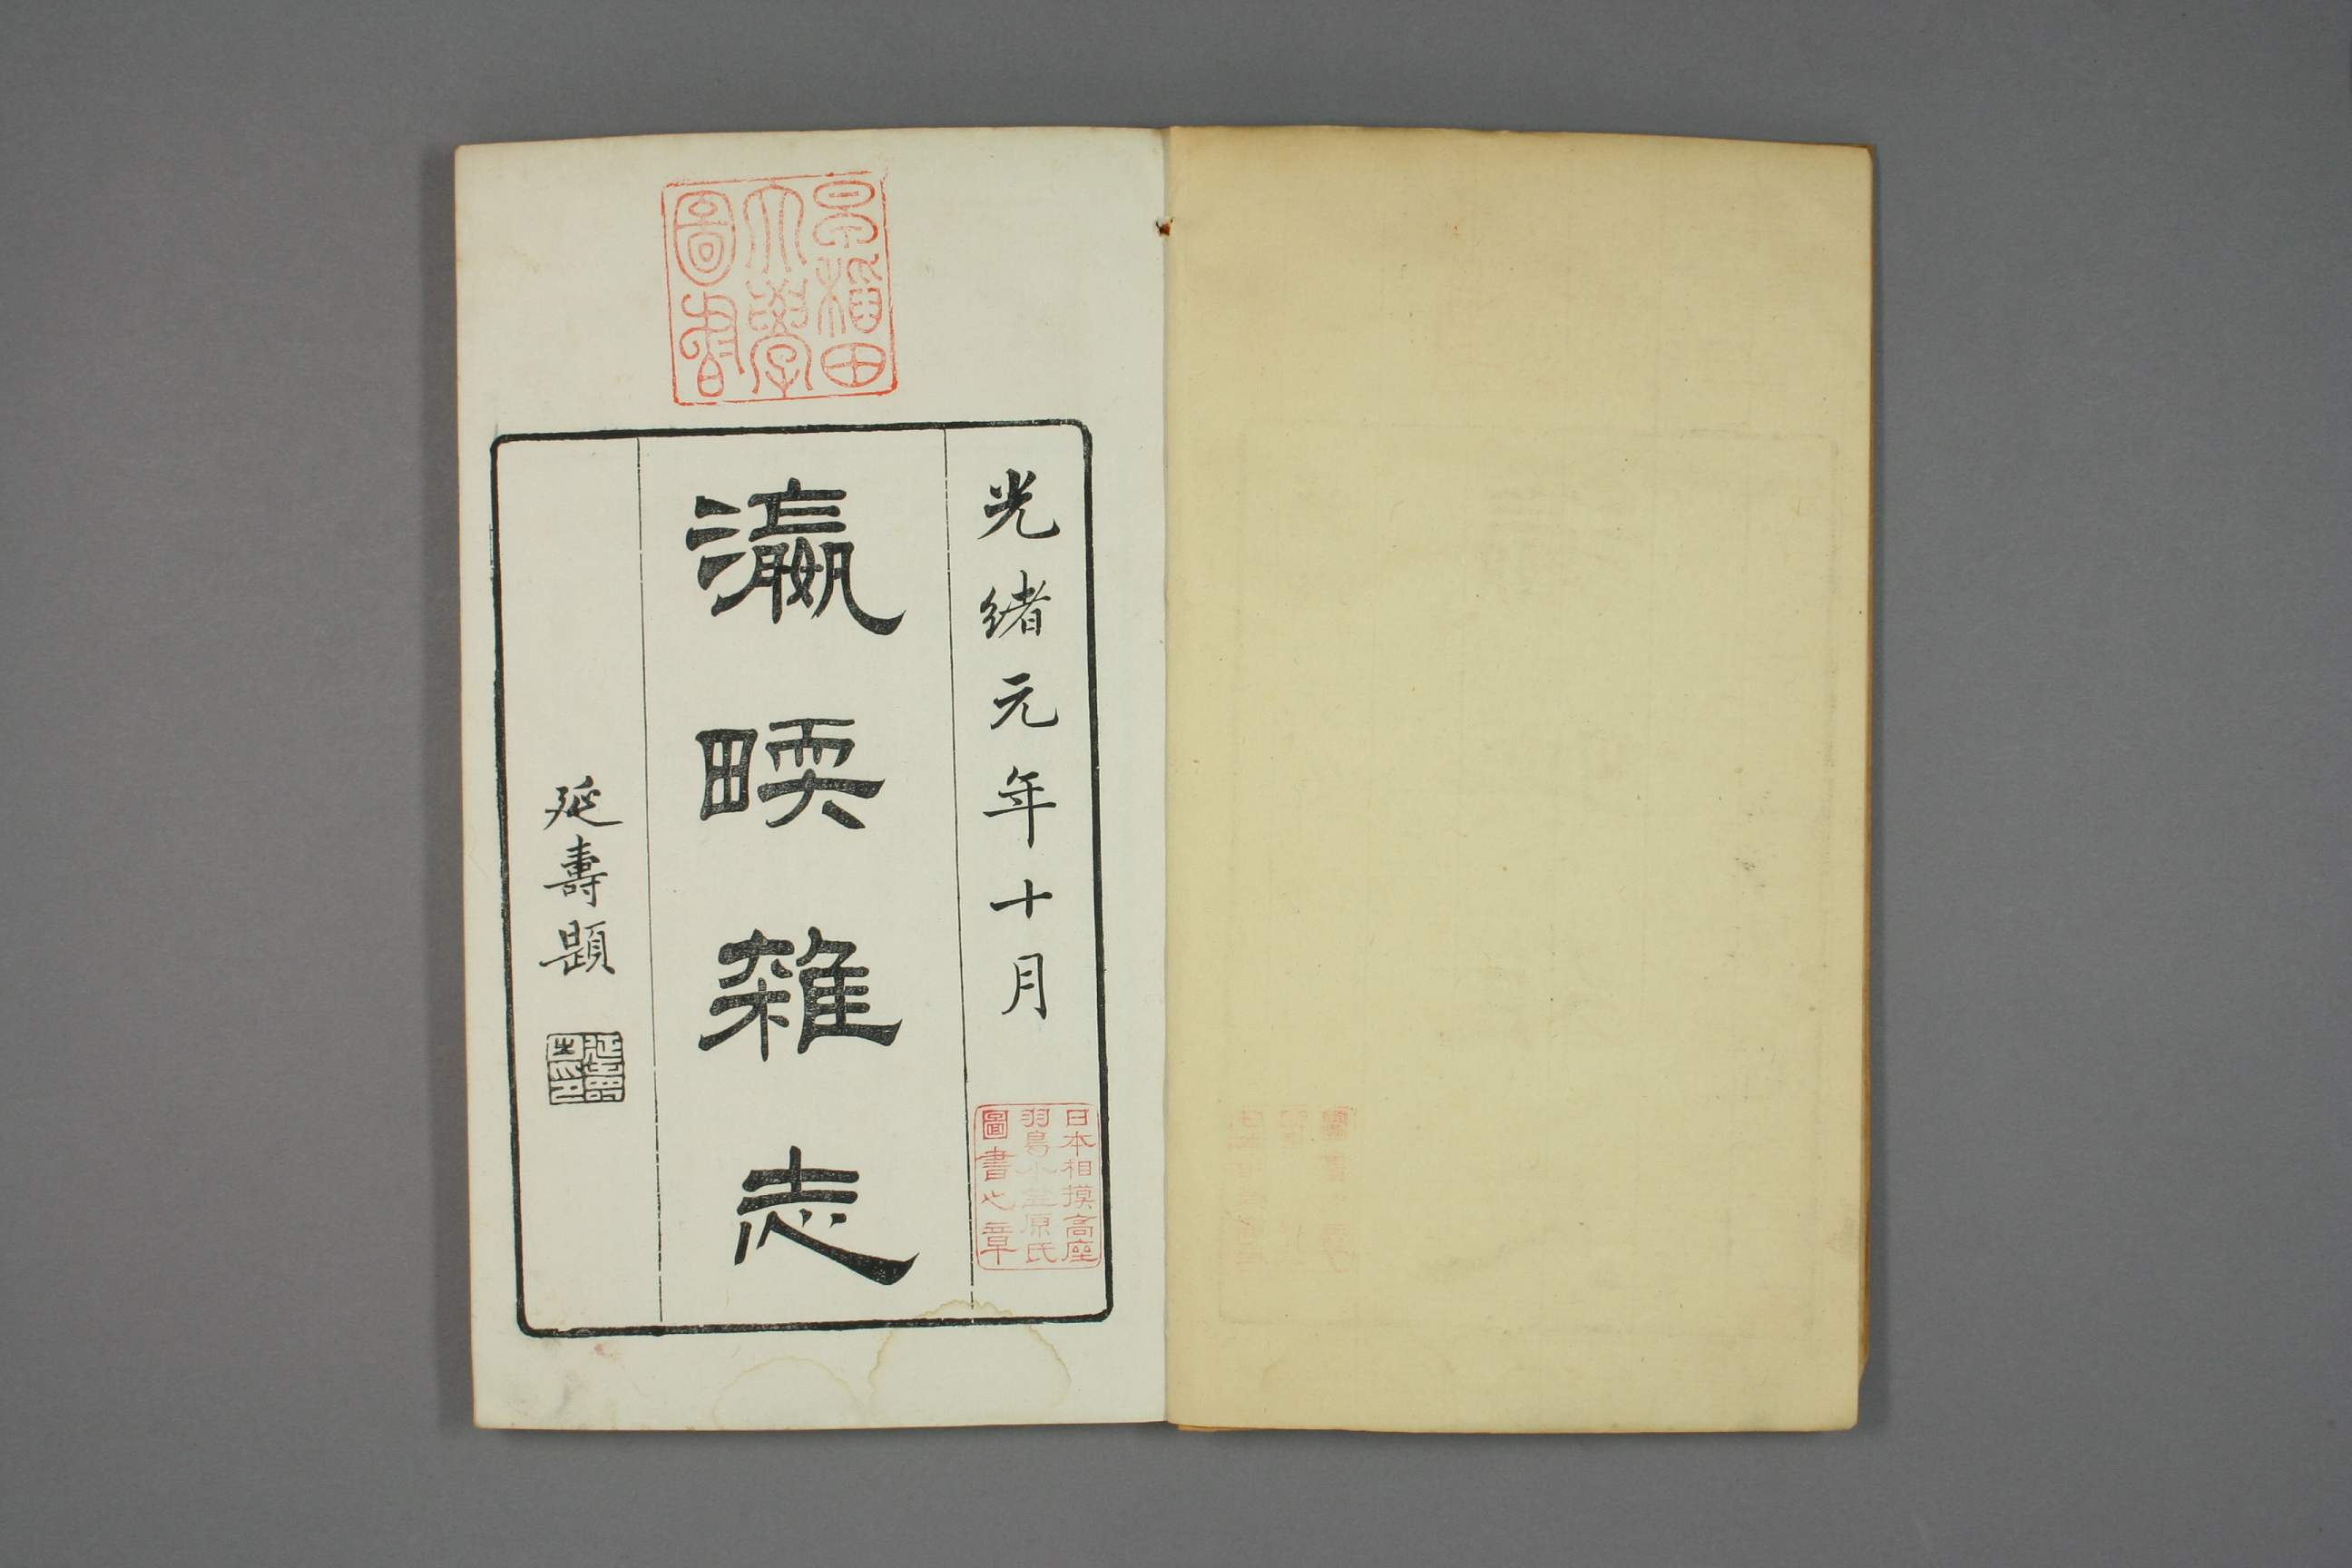 早稲田
大學
圖書
光緒元年十月
瀛堧雜志
延壽題
日本相摸高座
羽鳥小笠原氏
圖書之章